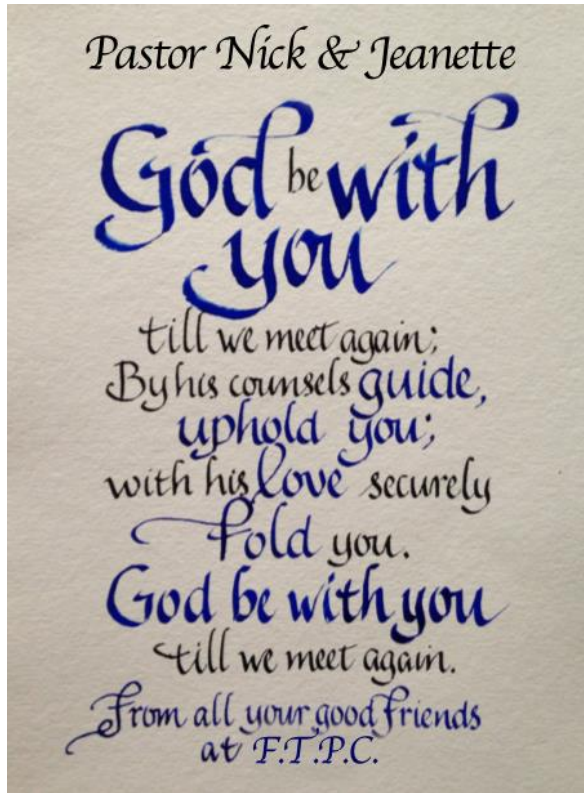 Pastor Nick & Jeanette
God be with
you
till we meet again;
By his counsels guide,
uphold you;
with his love securely
fold you.
God be with you
till we meet again.
From all your good friends
at F.T.P.C.